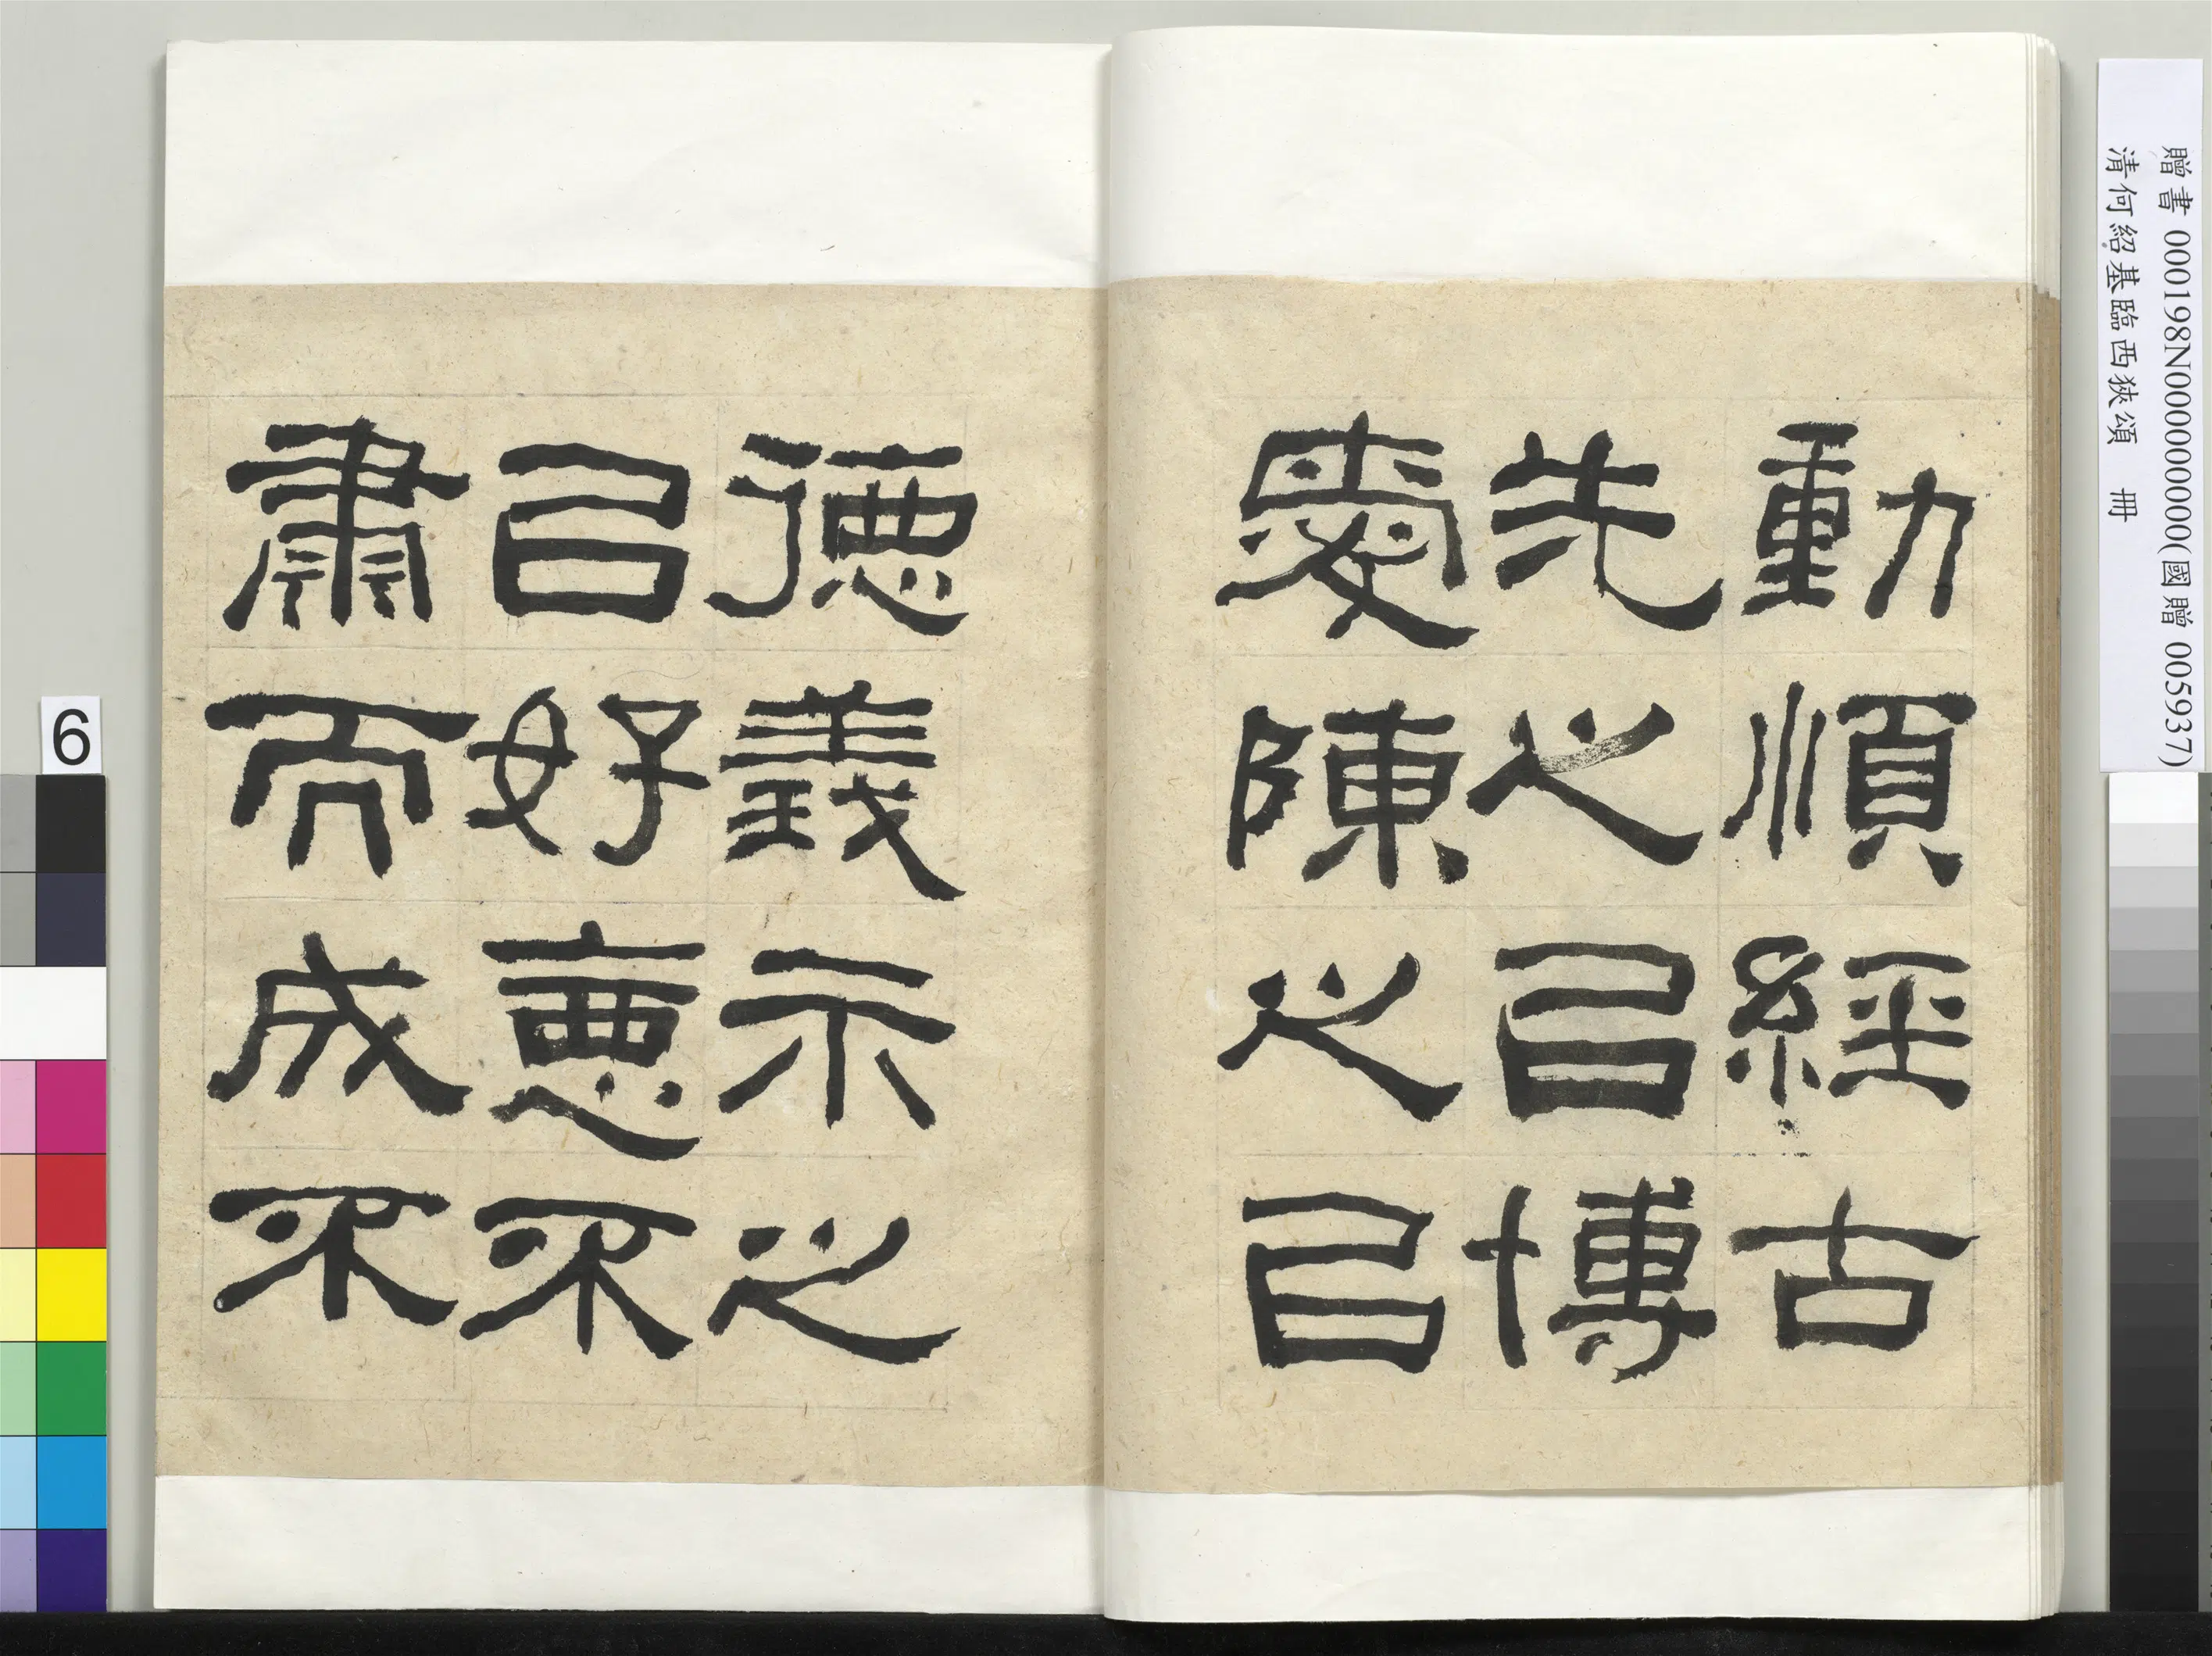 贈書 000198N000000000(國贈 005937)
清何紹基臨西狹頌 冊
動順經古
先之㠯博
愛陳之㠯
德義示之
㠯好惡不
肅而成不
6